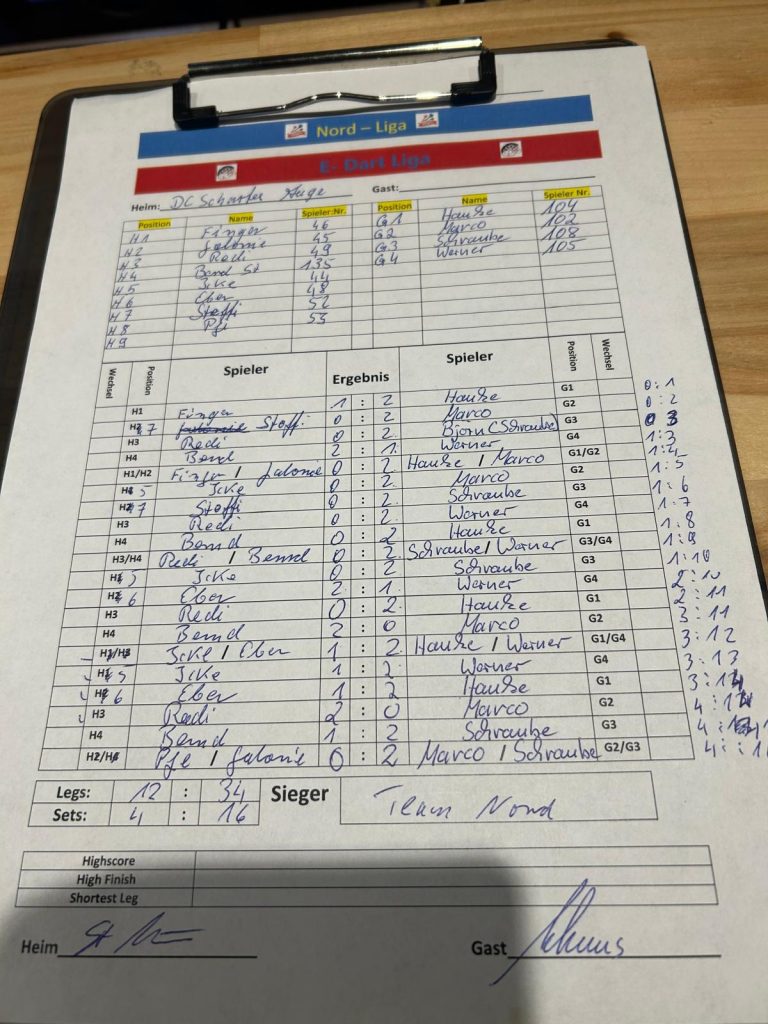 Nord – Liga
E- Dart Liga
Heim: DC Scharfes Auge Gast:
Position Name Spieler:Nr. Position Name Spieler Nr.
H1 Finger 46 G1 Hauke 104
H2 Jalonie 45 G2 Marco 102
H3 Redi 49 G3 Schraube 108
H4 Bernd St 135 G4 Werner 105
H5 Icke 44
H6 Eber 48
H7 Steffi 52
H8 53
H9
Wechsel Position Spieler Ergebnis Spieler Position Wechsel
H1 Finger 1 : 2 Hauke G1 0:1
H2 7 Steffi 0 : 2 Marco G2 0:2
H3 Redi 0 : 2 Björn (Schraube) G3 0 3
H4 Bernd 2 : 1 Werner G4 1:3
H1/H2 Finger / Jalonie 0 : 2 Hauke / Marco G1/G2 1:4
H1 5 Icke 0 : 2 Marco G2 1:5
H2 7 Steffi 0 : 2 Schraube G3 1:6
H3 Redi 0 : 2 Werner G4 1:7
H4 Bernd 0 : 2 Hauke G1 1:8
H3/H4 Redi / Bernd 0 : 2 Schraube / Werner G3/G4 1:9
H1 5 Icke 0 : 2 Schraube G3 1:10
H2 6 Eber 2 : 1 Werner G4 2:10
H3 Redi 0 : 2 Hauke G1 2:11
H4 Bernd 2 : 0 Marco G2 3:11
H1/H3 Icke / Eber 1 : 2 Hauke / Werner G1/G4 3:12
H1 5 Icke 1 : 2 Werner G4 3:13
H2 6 Eber 1 : 2 Hauke G1 3:14
H3 Redi 2 : 0 Marco G2
H4 Bernd 1 : 2 Schraube G3
H2/H4 / Jalonie 0 : 2 Marco / Schraube G2/G3
Legs: 12 : 34 Sieger Team Nord
Sets: 4 : 16
Highscore
High Finish
Shortest Leg
Heim Gast